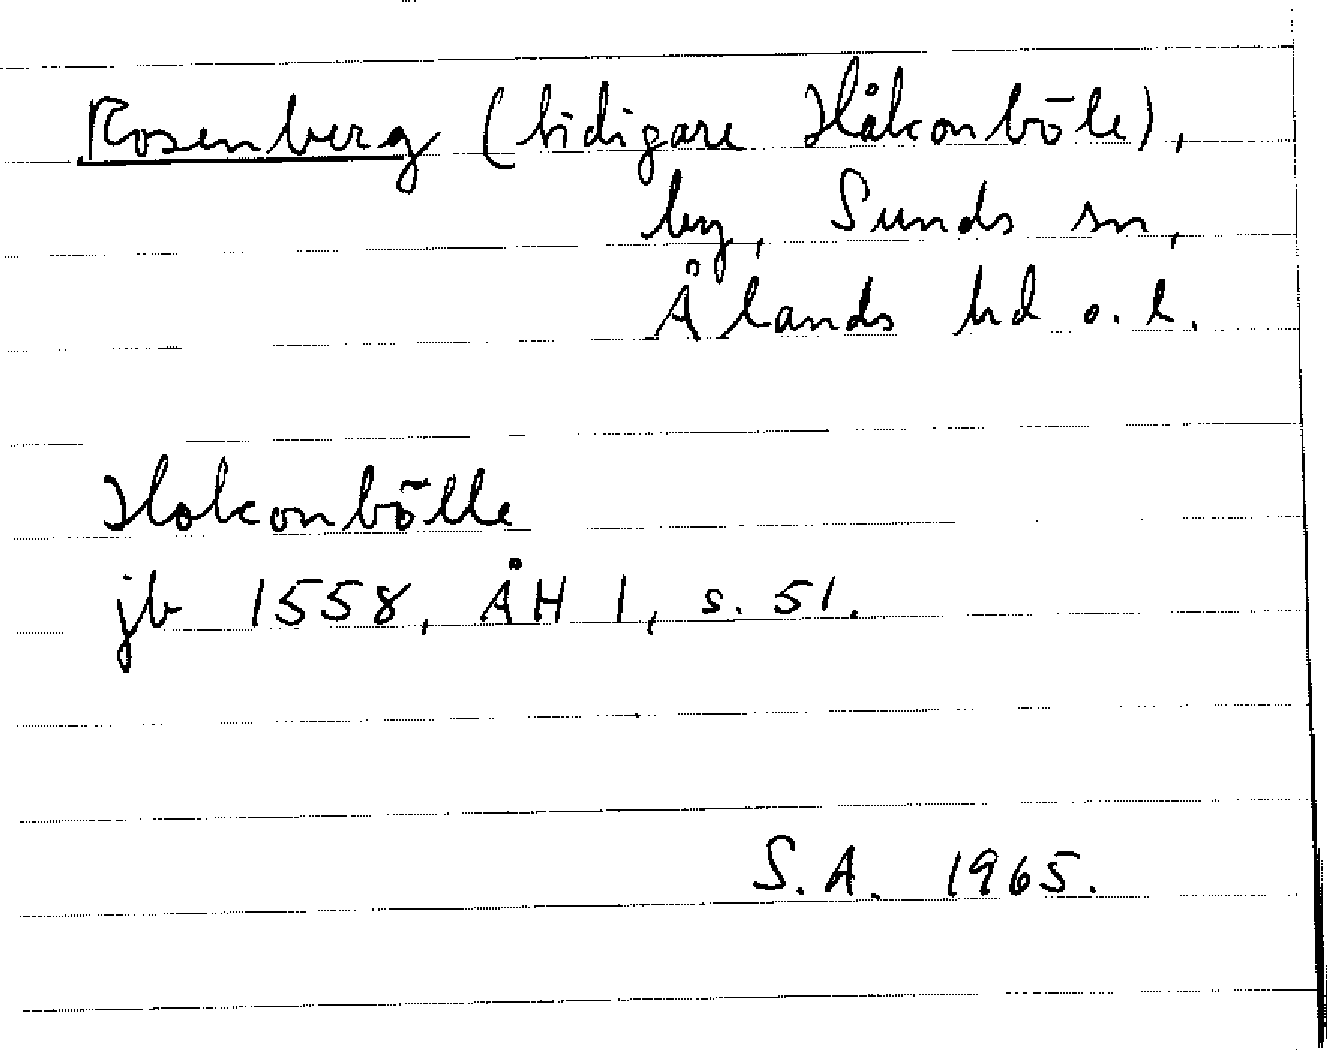 Rosenberg (tidigare Håkonböle),
by, Sunds sn,
Ålands hd o. l.
Hokonbölle
jb 1558, ÅH 1, s. 51.
S.A. 1965.